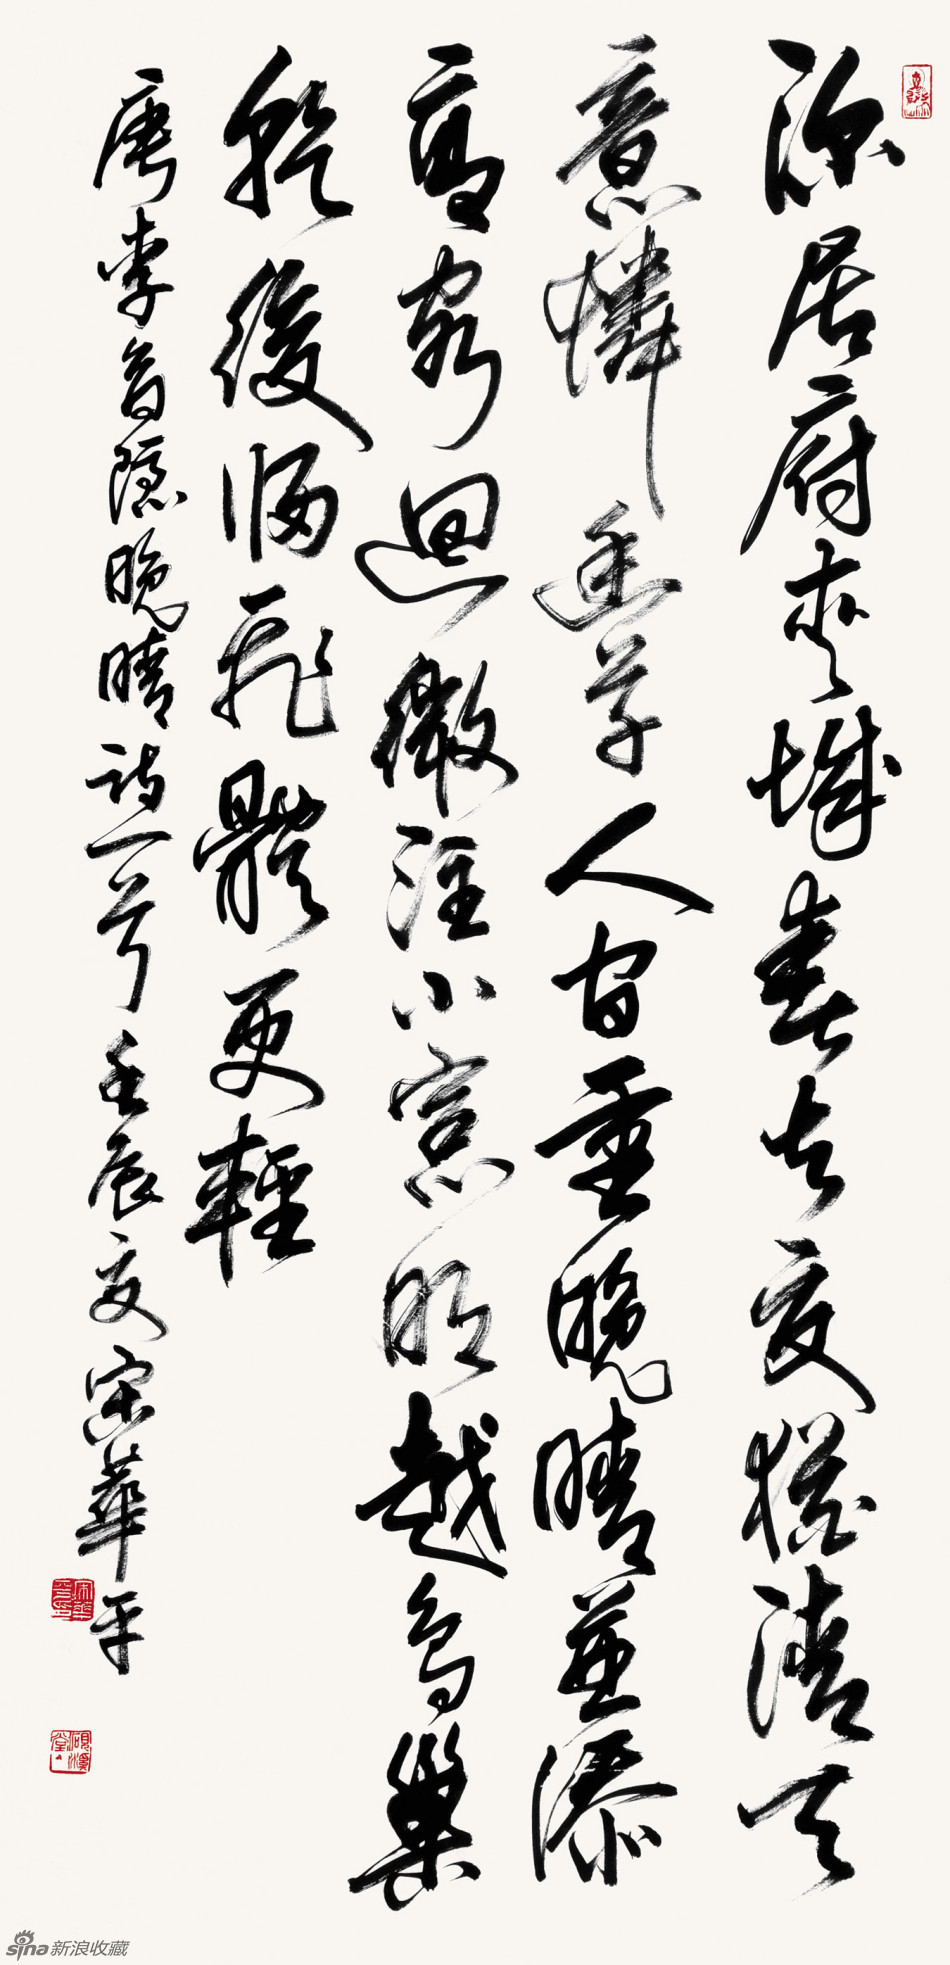 深居府夾城春去夏猶清天
意憐幽草人間重晚晴並添
高閣迴微注小窗明越鳥巢
乾後歸飛體更輕
唐李商隱晚晴詩一首壬辰夏宋華平
sina新浪收藏